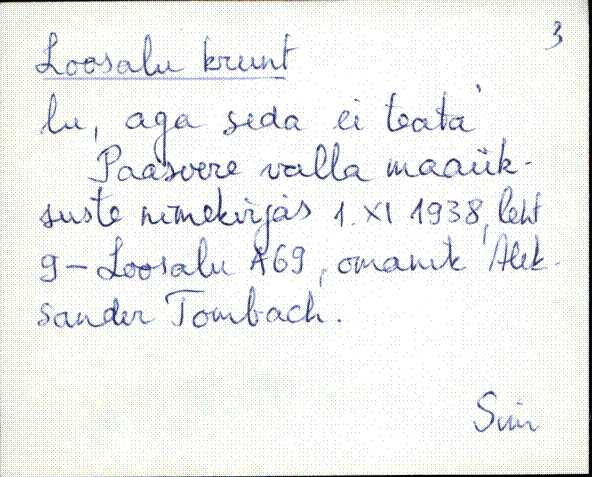 3
Loosalu krunt
lu, aga seda ei teata'
Paasvere valla maaük-
suste nimekirjas 1. XI 1938, leht
9 - Loosalu A69, omanik Alek-
sander Tombach.